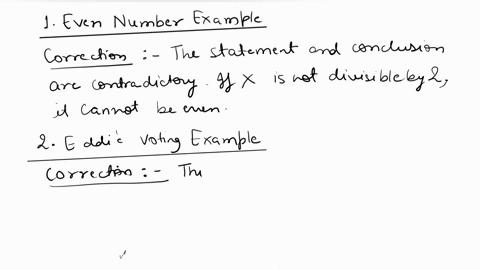 1. Even Number Example
Correction :- The statement and conclusion
are contradictory. If X is not divisible by 2,
it cannot be even.
2. Eddie Voting Example
Correction :- Thu